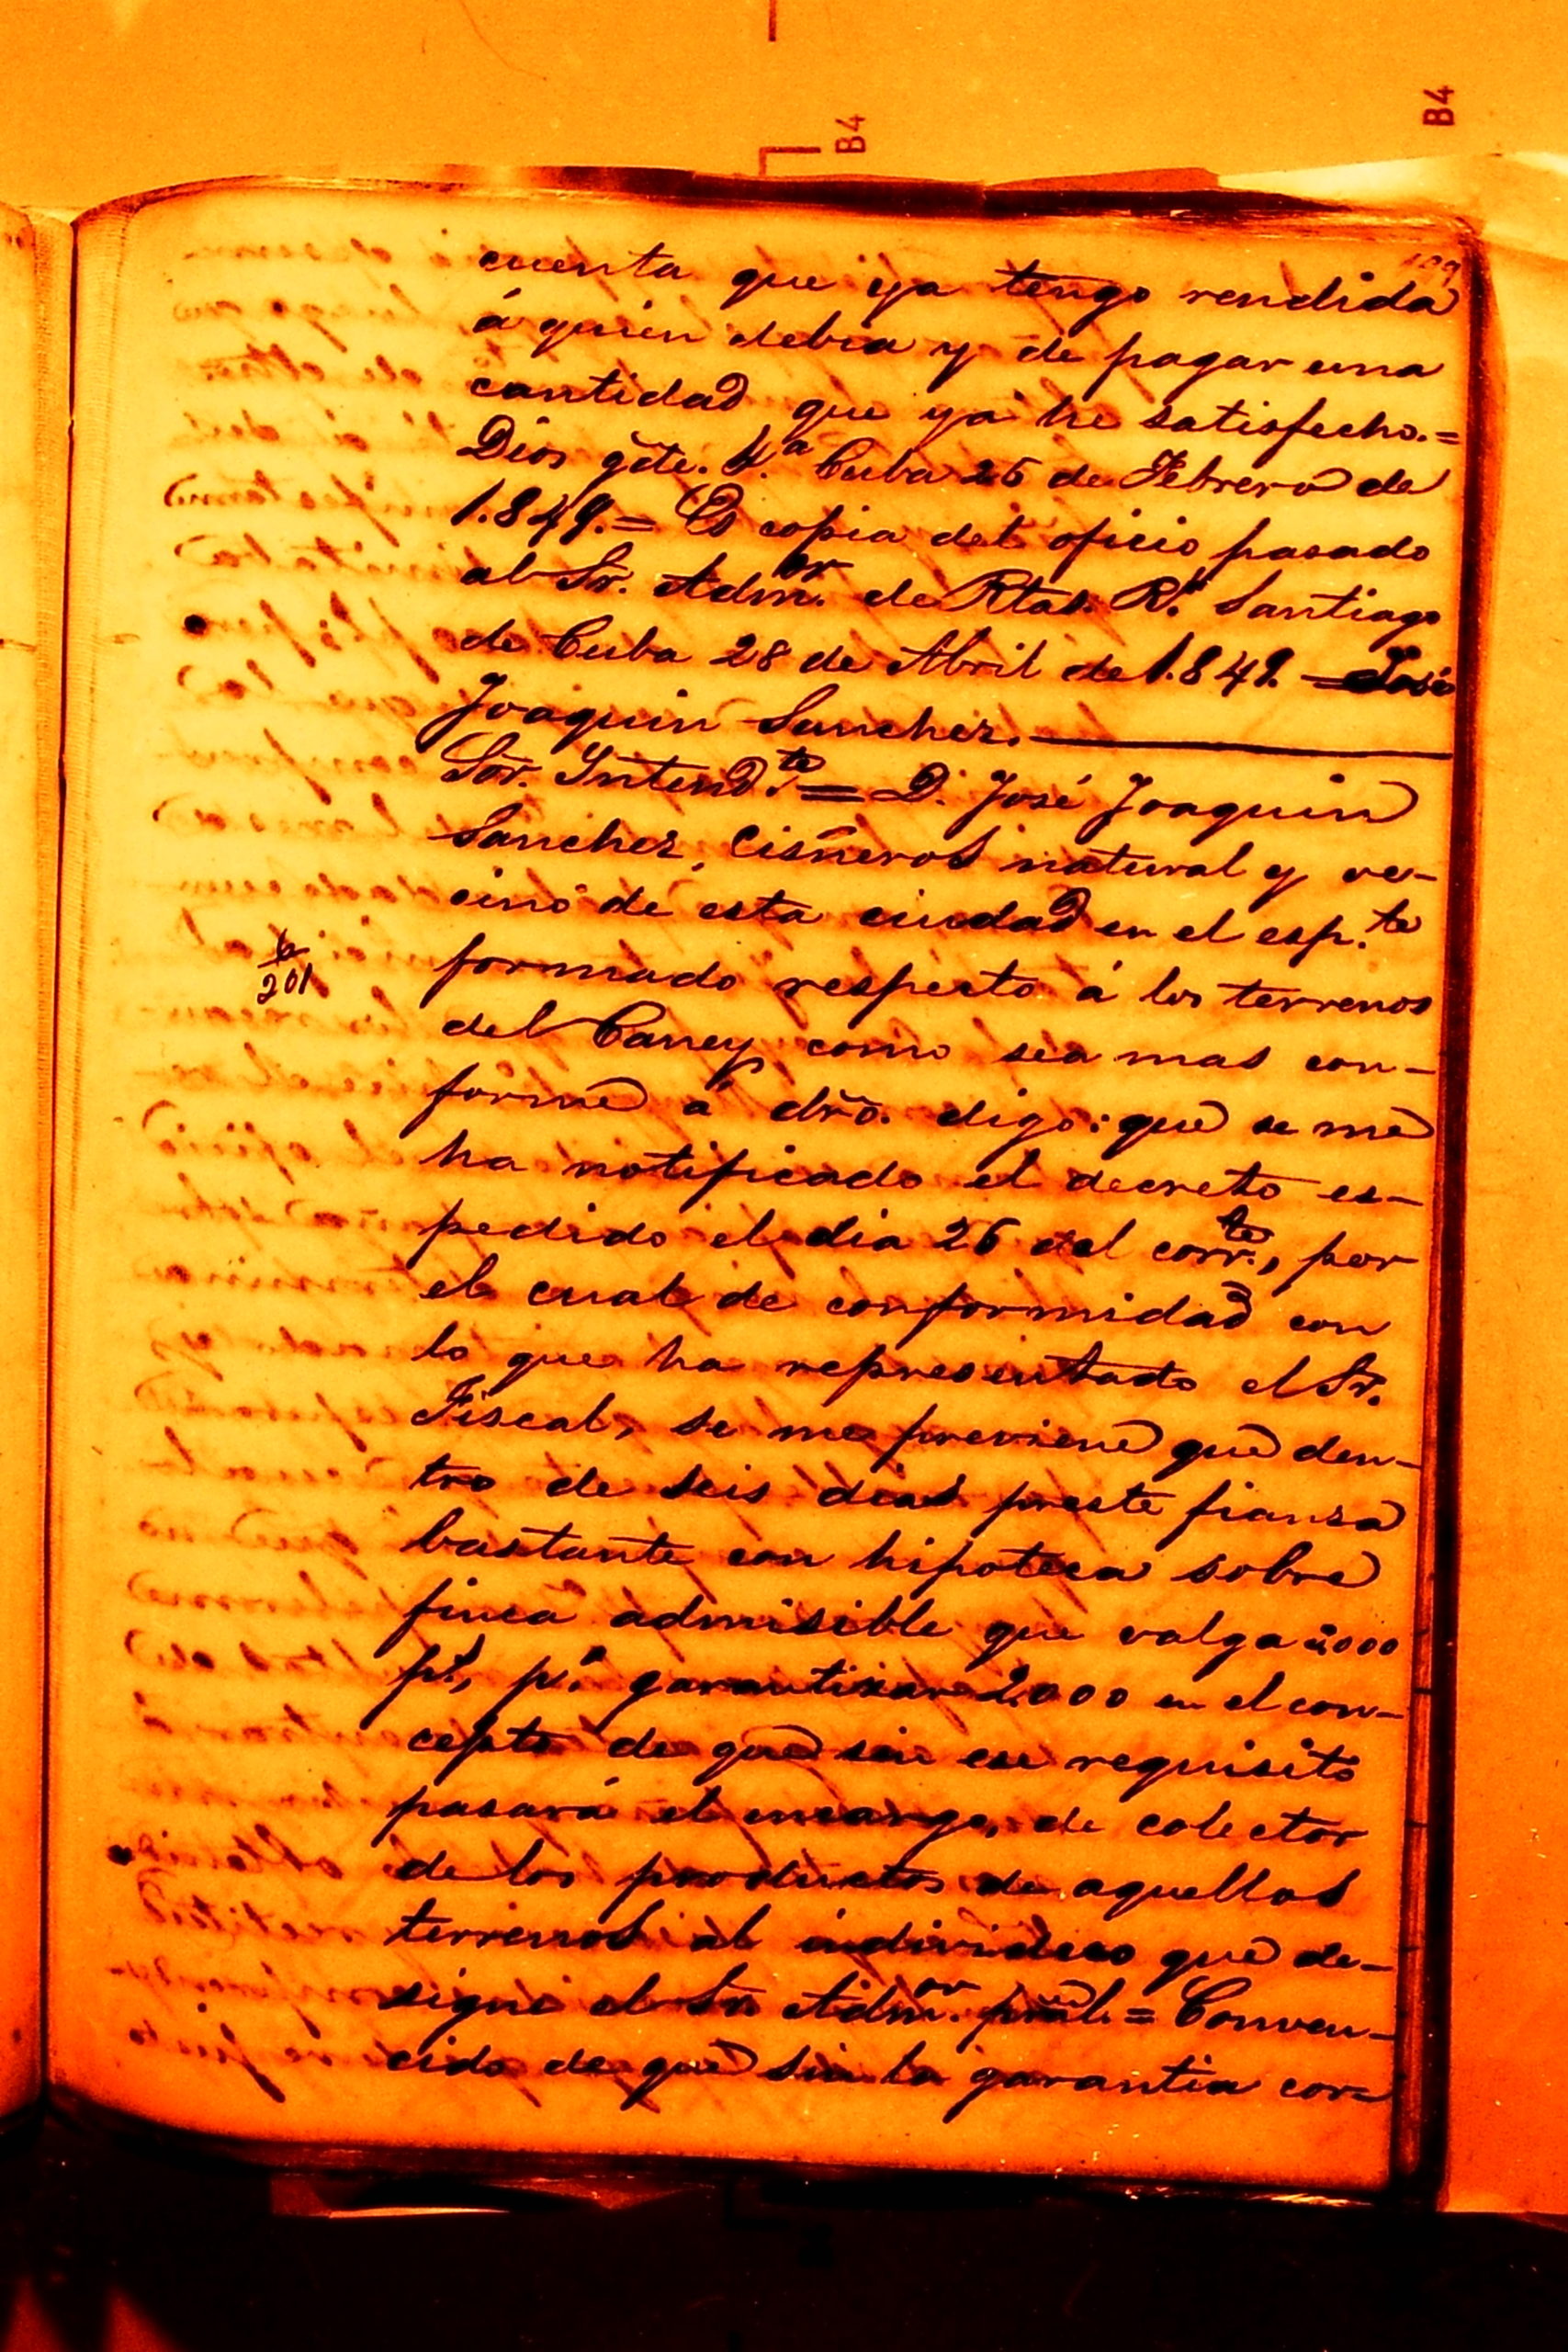 B4
B4
109
cuenta que ya tengo rendida
á quien debia y de pagar una
cantidad que ya he satisfecho.=
Dios gũe. &.ª Cuba 26 de Febrero de
1.849.= Es copia del oficio pasado
al Sr. Adm.or de Rtas. R.s Santiago
de Cuba 28 de Abril de 1.849. = José
Joaquin Sanchez.
Sor. Intend.te = D. José Joaquin
Sanchez, Cisñeros natural y ve-
cino de esta ciudad en el esp.te
6/201
formado respecto á los terrenos
del Caney como sea mas con-
forme á dr̃o. digo: que se me
ha notificado el decreto es-
pedido el dia 26 del corr.te, por
el cual de conformidad con
lo que ha representado el Sr.
Fiscal, se me previene que den-
tro de seis dias preste fianza
bastante con hipoteca sobre
finca admisible que valga 000
p.s, p.a garantizar 2.000 en el con-
cepto de que sin ese requisito
pasará el encargo, de colector
de los productos de aquellos
terrenos al individuo que de-
signe el Sr. Adm.or pr̃al. = Conven-
cido de que sin la garantia cor=